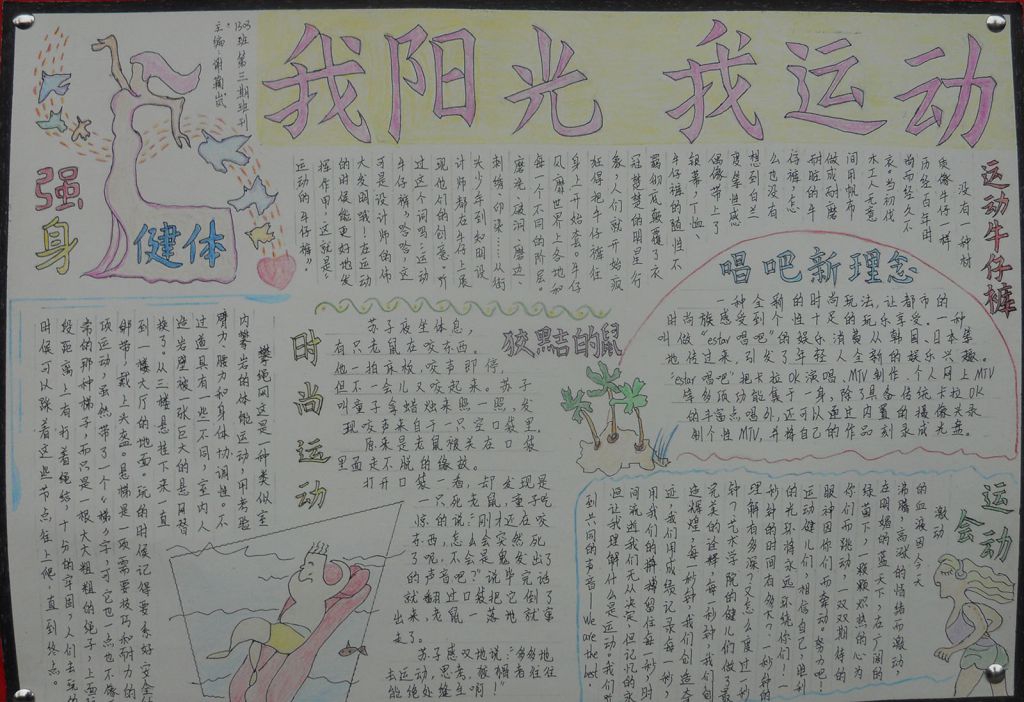 我阳光 我运动
1303班第三期班刊
强身
健体
运动牛仔裤
没有一种材
质像牛仔一样
历经百年时
尚而经久不
衰。当初伐
木工人无意
间用帆布
做成耐磨
耐脏的牛
仔裤，怎
么也没有
想到白兰
度等性感
偶像带上了
银幕，T恤、
牛仔裤的随性不
羁彻底颠覆了衣
冠楚楚的明星形
象，人们就开始疯
狂得把牛仔裤往
身上开始套。牛仔
风靡世界上各地和
每一个不同的阶层，
磨光、破洞、磨边、
刺绣、铆钉……从街
头少年到知名设
计师都在牛仔上展
现他们的创意。听
过这个词吗：运动
牛仔裤，哈哈，这
可是设计师的伟
大发明哦！在运动
的时候能更好地发
挥作用，这就是：
运动的牛仔裤。
唱吧新理念
一种全新的时尚玩法，让都市的
时尚族感受到个性十足的玩乐享受。一种
叫做“estar唱吧”的娱乐消费从韩国、日本等
地传过来，引发了年轻人全新的娱乐兴趣。
“estar唱吧”把卡拉OK演唱、MTV制作、个人网上MTV
等多项功能集于一身，除了具备传统卡拉OK
的丰富点唱外，还可以通过内置的摄像头录
制个性MTV，并将自己的作品刻录成光盘。
狡黠的鼠
苏子夜坐休息，
有只老鼠在咬东西。
他一拍床板，咬声即停，
但不一会儿又咬起来。苏子
叫童子拿蜡烛来照一照，发
现咬声来自于一只空口袋里，
原来是老鼠被关在口袋
里面走不脱的缘故。
打开口袋一看，却发现是
一只死老鼠，童子吃
惊的说：“刚才还在咬
东西，怎么会突然死
了呢，不会是鬼发出了
的声音吧？”说毕完话
就翻过口袋把它倒了
出来，老鼠一落地就窜
走了。
苏子感叹地说：“多多地
去运动，思考，被捆者往往
能绝处逢生啊！”
时尚运动
攀绳网这是一种类似室
内攀岩的体能运动，用考验
臂力、腰力和身体协调性。不
过道具有一些不同，室内人
造岩壁被一张巨大的悬月替
换了。从三楼悬挂下来一直
到一楼大厅的地面。玩的时候记得要系好安全
绑带，戴上头盔。悬梯是一项需要技巧和耐力的
项运动，虽然带了一个“梯”字，可它一点也不像
常的那种梯子，而只是一根大大粗粗的绳子，上面
段距离上有打着绳结，十分的牢固，人们去玩的
时候可以踩着这些节点往上爬，直到终点。
运动会
激动
的血液因今天
沸腾，高涨的情绪而激动，
在明媚的蓝天下，在广阔的
绿茵下，一颗颗炽热的心为
你们而跳动，一双双期待的
眼神因你们而牵动。努力吧！
运动健儿们，相信自己，胜利
的光环将永远环绕你们！一
秒钟的时间有多久？一秒钟的
理解有多深？又怎么度过一秒
钟？艺术学院的健儿们做了最
完美的诠释，每一秒钟，我们创
造辉煌，每一秒钟，我们创造奇
迹，我们用成绩记录每一秒，
用我们的拼搏留住每一秒，时
间流逝我们无从决定，但记忆的永
恒让我理解什么是运动，我们
到六同的声音——We are the best.